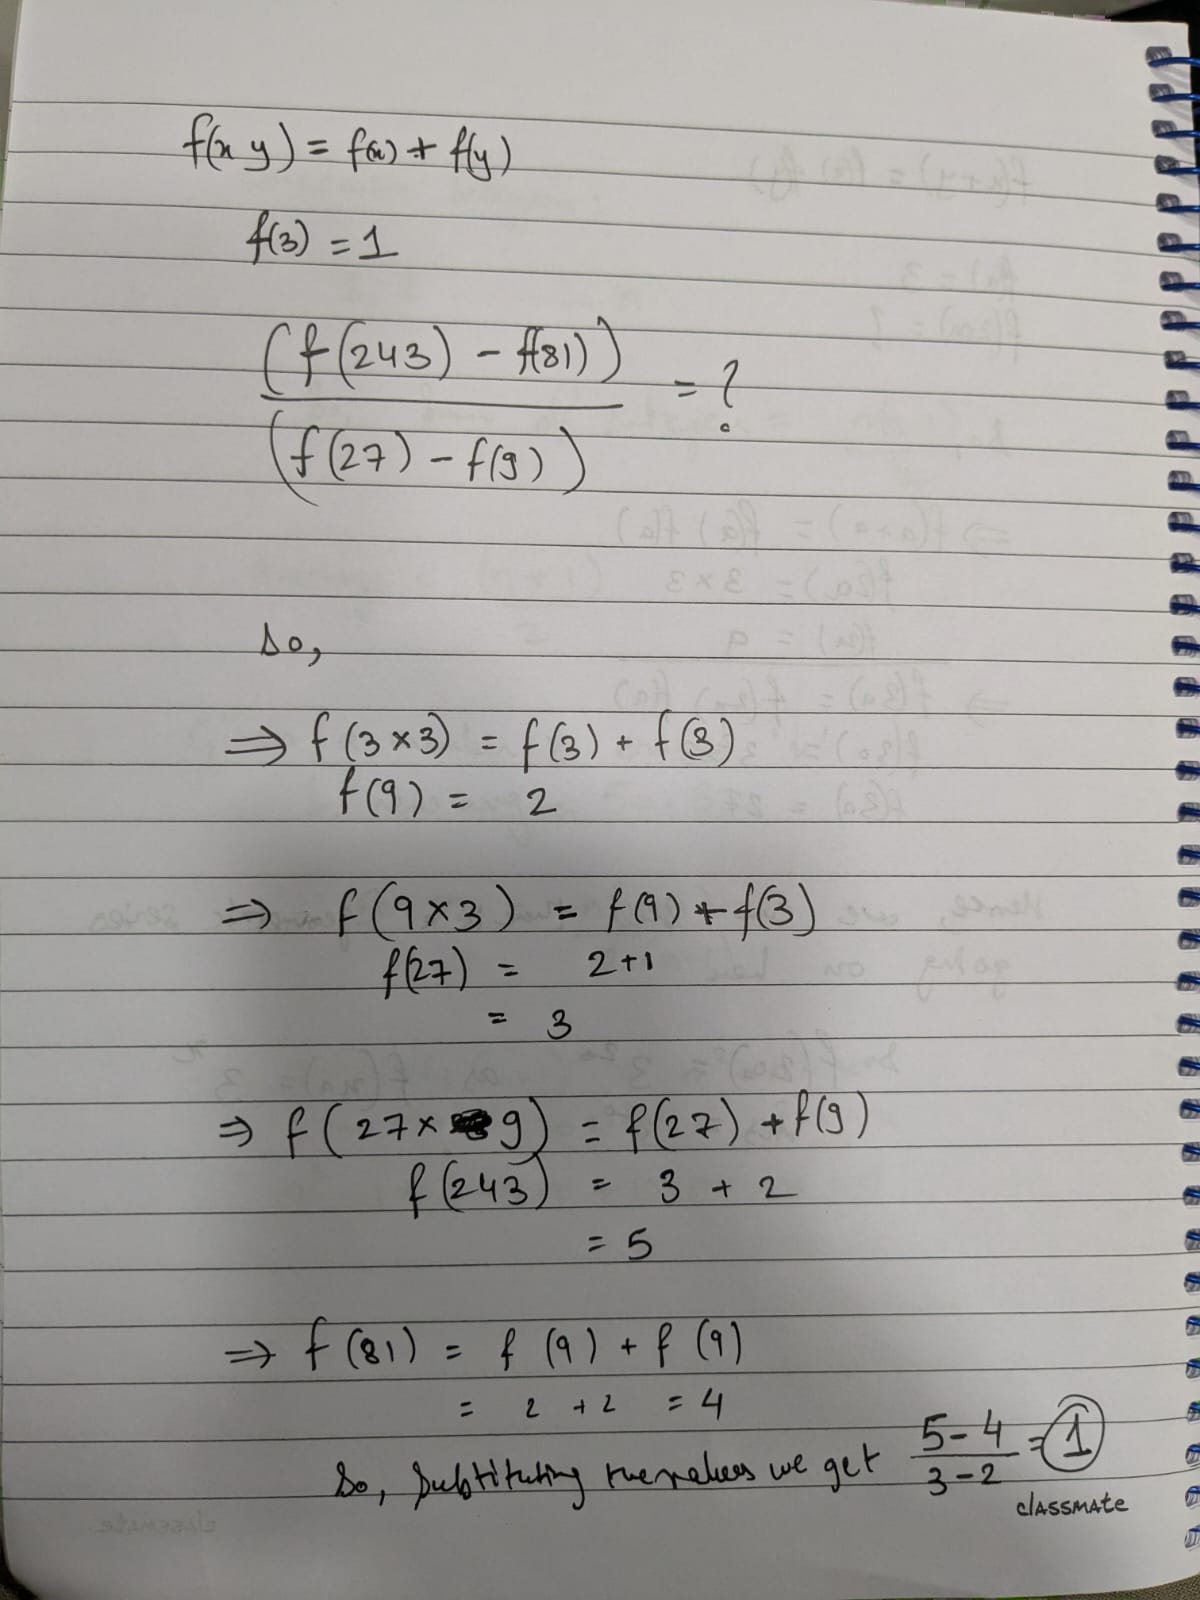 f(x y) = f(x) + f(y)
f(3) = 1
(f(243) - f(81))
(f(27) - f(9))
= ?
So,
⇒ f(3×3) = f(3) + f(3)
f(9) = 2
⇒ f(9×3) = f(9) + f(3)
f(27) = 2+1
= 3
⇒ f(27× 9) = f(27) + f(9)
f(243) = 3 + 2
= 5
⇒ f(81) = f(9) + f(9)
= 2 + 2 = 4
So, substituting the values we get 5-4 / 3-2 = 1
classmate